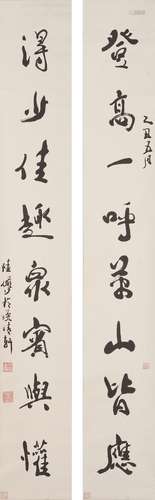 登高一呼萬山皆應
乙丑五月
得少佳趣衆賓與懽